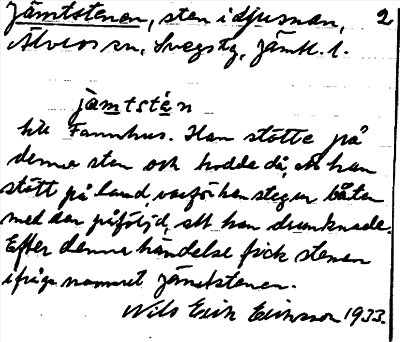 Jämtstenen, sten i Ljusnan, 2
Älvros sn, Svegs tg, Jämtl. l.
jämtstén
till Fannhus. Han stötte på
denna sten och trodde då, att han
stött på land, varför han steg ur båten
med den påföljd, att han drunknade.
Efter denna händelse fick stenen
ifråga namnet Jämtstenen.
Nils Erik Eriksson 1933.